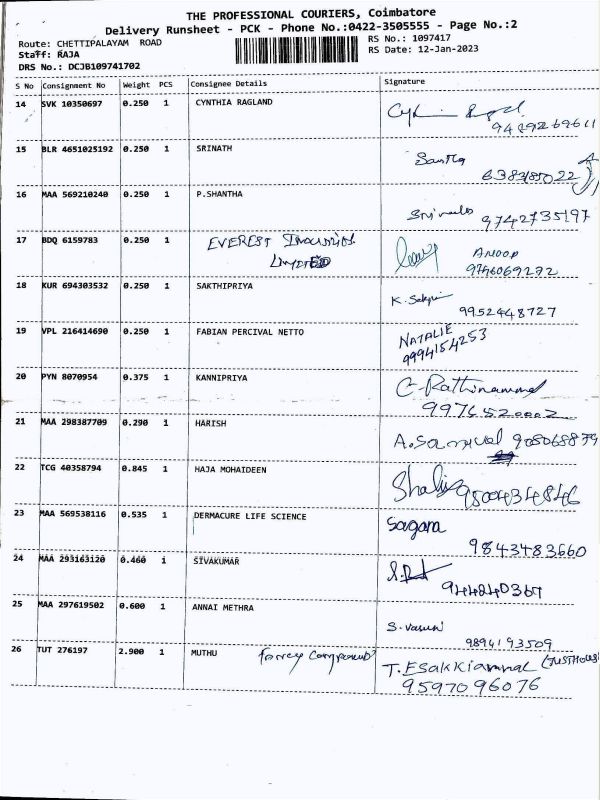 THE PROFESSIONAL COURIERS, Coimbatore
Delivery Runsheet - PCK - Phone No.:0422-3505555 - Page No.:2
Route: CHETTIPALAYAM ROAD
RS No.: 1097417
Staff: RAJA
RS Date: 12-Jan-2023
DRS No.: DCJB109741702
S No Consignment No Weight PCS Consignee Details Signature
14 SVK 10350697 0.250 1 CYNTHIA RAGLAND
15 BLR 4651025192 0.250 1 SRINATH
Santha
16 MAA 569210240 0.250 1 P.SHANTHA
9742735197
17 BDQ 6159783 0.250 1 EVEREST Industries
Limited
ANOOP
9746069272
18 KUR 694303532 0.250 1 SAKTHIPRIYA
9952448727
19 VPL 216414690 0.250 1 FABIAN PERCIVAL NETTO
NATALIE
9994154253
20 PYN 8070954 0.375 1 KANNIPRIYA
C. Rathinammal
21 MAA 298387709 0.290 1 HARISH
A. Samuel
22 TCG 40358794 0.845 1 HAJA MOHAIDEEN
23 MAA 569538116 0.535 1 DERMACURE LIFE SCIENCE
Sagana
9843483660
24 MAA 293163120 0.460 1 SIVAKUMAR
25 MAA 297619502 0.600 1 ANNAI METHRA
9894193509
26 TUT 276197 2.900 1 MUTHU
T. Esakkiammal
9597096076